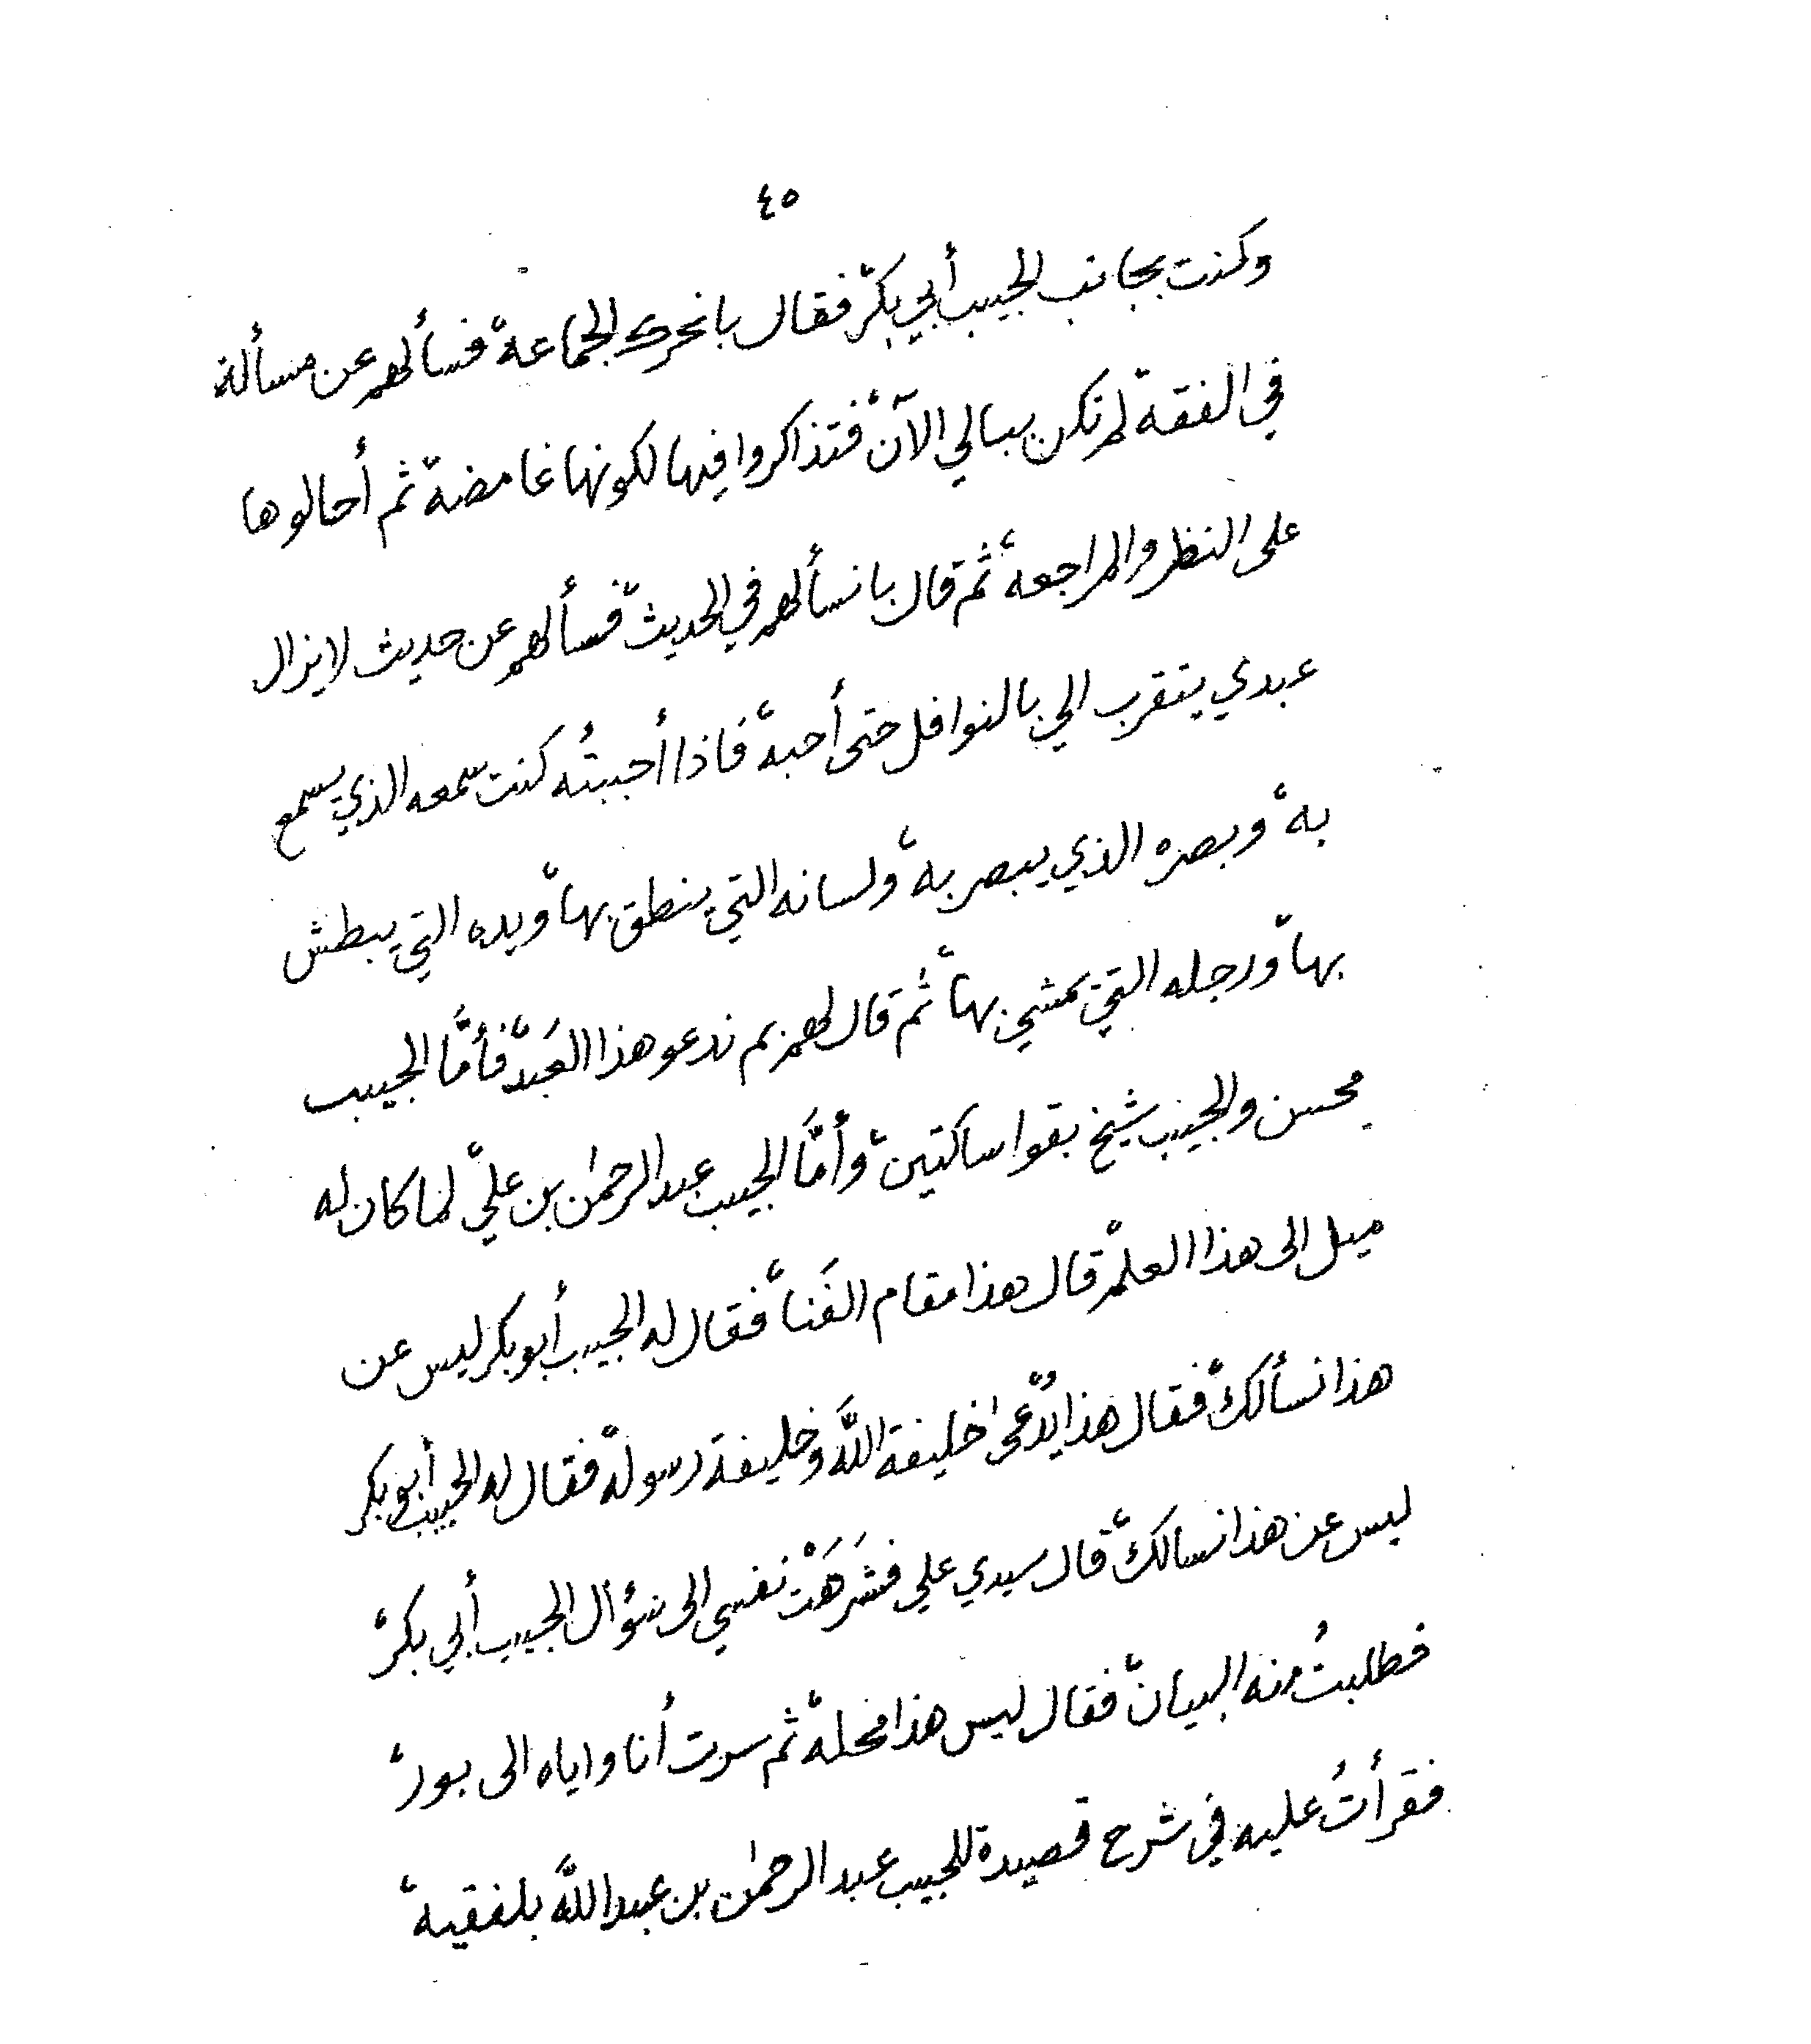 ٤٥
وكنت بجانب الحبيب أبي بكر، فقال با نحرك الجماعة، فسألهم عن مسألة
في الفقه، لم تكن ببالي الآن، فتذاكروا فيها لكونها غامضة، ثم أحالوها
على النظر والمراجعه، ثم قال با نسألهم في الحديث، فسألهم عن حديث لا يزال
عبدي يتقرب الي بالنوافل حتى أحبه، فاذا أحببتُه كنت سمعه الذي يسمع
به، وبصره الذي يبصر به، ولسانه التي ينطق بها، ويده التي يبطش
بها، ورجله التي يمشي بها، ثم قال لهم بم ندعو هذا العَبد، فأمَّا الحبيب
محسن والحبيب شيخ بقوا ساكتين، وأمَّا الحبيب عبد الرحمٰن بن علي، لما كان له
ميل الى هذا العلم، قال هذا مقام الفَنا، فقال له الحبيب أبو بكر ليس عن
هذا نسألك، فقال هذا يُدْعىٰ خليفة اللَّه وخليفة رسوله، فقال له الحبيب أبو بكر
ليس عن هذا نسالك، قال سيدي علي فشَرَهَتْ نفسي الى سؤال الحبيب أبي بكر،
فطلبتُ منه البيان، فقال ليس هذا محله، ثم سرت أنا واياه الى بور،
فقرأتُ عليه في شرح قصيدة للحبيب عبد الرحمٰن بن عبد اللَّه بلفقيه،